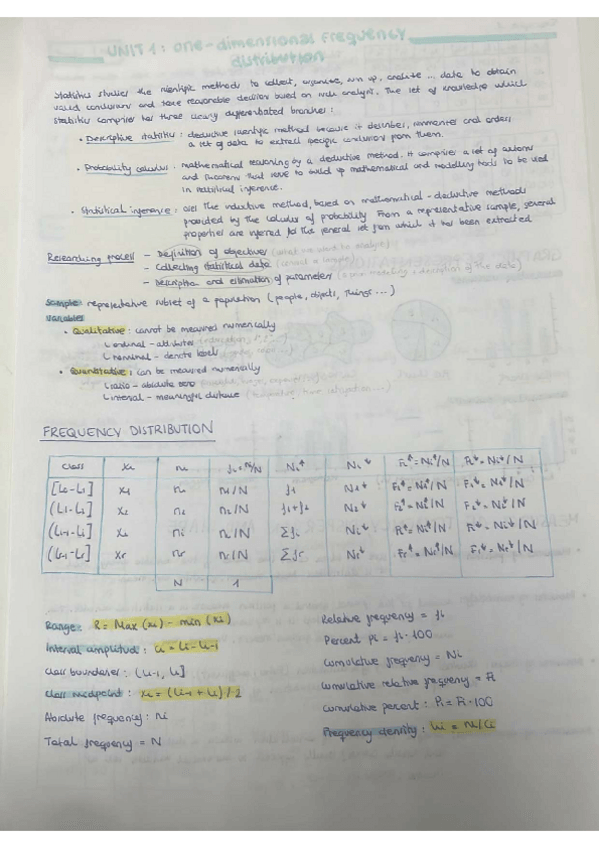 UNIT 1: one-dimensional frequency
distribution
Statistics studies the scientific methods to collect, organise, sum up, analyse ... data to obtain
valid conclusions and take reasonable decision based on such analysis. The set of knowledge which
statistics comprises has three clearly differentiated branches:
• Descriptive statistics: deductive scientific method because it describes, summarises and orders
a set of data to extract specific conclusions from them.
• Probability calculus: mathematical reasoning by a deductive method. It comprises a set of axioms
and theorems that serve to build up mathematical and modelling tools to be used
in statistical inference.
• Statistical inference: uses the inductive method, based on mathematical-deductive methods
provided by the calculus of probability. From a representative sample, general
properties are inferred for the general set from which it has been extracted
Researching process - Definition of objectives (what we want to analyse)
- Collecting statistical data
- Description and estimation of parameters
Sample: representative subset of a population (people, objects, things ...)
Variables
• Qualitative: cannot be measured numerically
↳ ordinal - attributes
↳ nominal - denote labels
• Quantitative: can be measured numerically
↳ ratio - absolute zero
↳ interval - meaningful distance
FREQUENCY DISTRIBUTION
Class xi ni fi = ni/N Ni↑ Ni↓ Fi↑ = Ni↑/N Fi↓ = Ni↓/N
[L0 - L1] x1 n1 n1/N f1 N1↓ F1↑ = N1↑/N F1↓ = N1↓/N
(L1 - L2] x2 n2 n2/N f1+f2 N2↓ F2↑ = N2↑/N F2↓ = N2↓/N
(Li-1 - Li] xi ni ni/N Σfi Ni↓ Fi↑ = Ni↑/N Fi↓ = Ni↓/N
(Lr-1 - Lr] xr nr nr/N Σfr Nr↓ Fr↑ = Nr↑/N Fr↓ = Nr↓/N
N 1
Range: R = Max (xi) - min (xi)
Interval amplitud: ci = Li - Li-1
Class boundaries: (Li-1, Li]
Class midpoint: xi = (Li-1 + Li) / 2
Absolute frequency: Ni
Total frequency = N
Relative frequency = fi
Percent pi = fi · 100
Cumulative frequency = Ni
Cumulative relative frequency = Fi
Cumulative percent: Pi = Fi · 100
Frequency density: hi = ni/ci